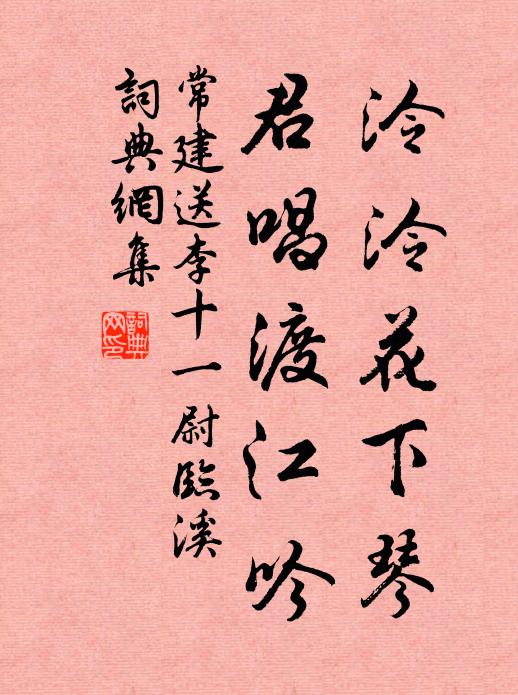 泠泠花下琴
君唱渡江吟
常建送李十一尉臨溪
詞典網集
詞典網印